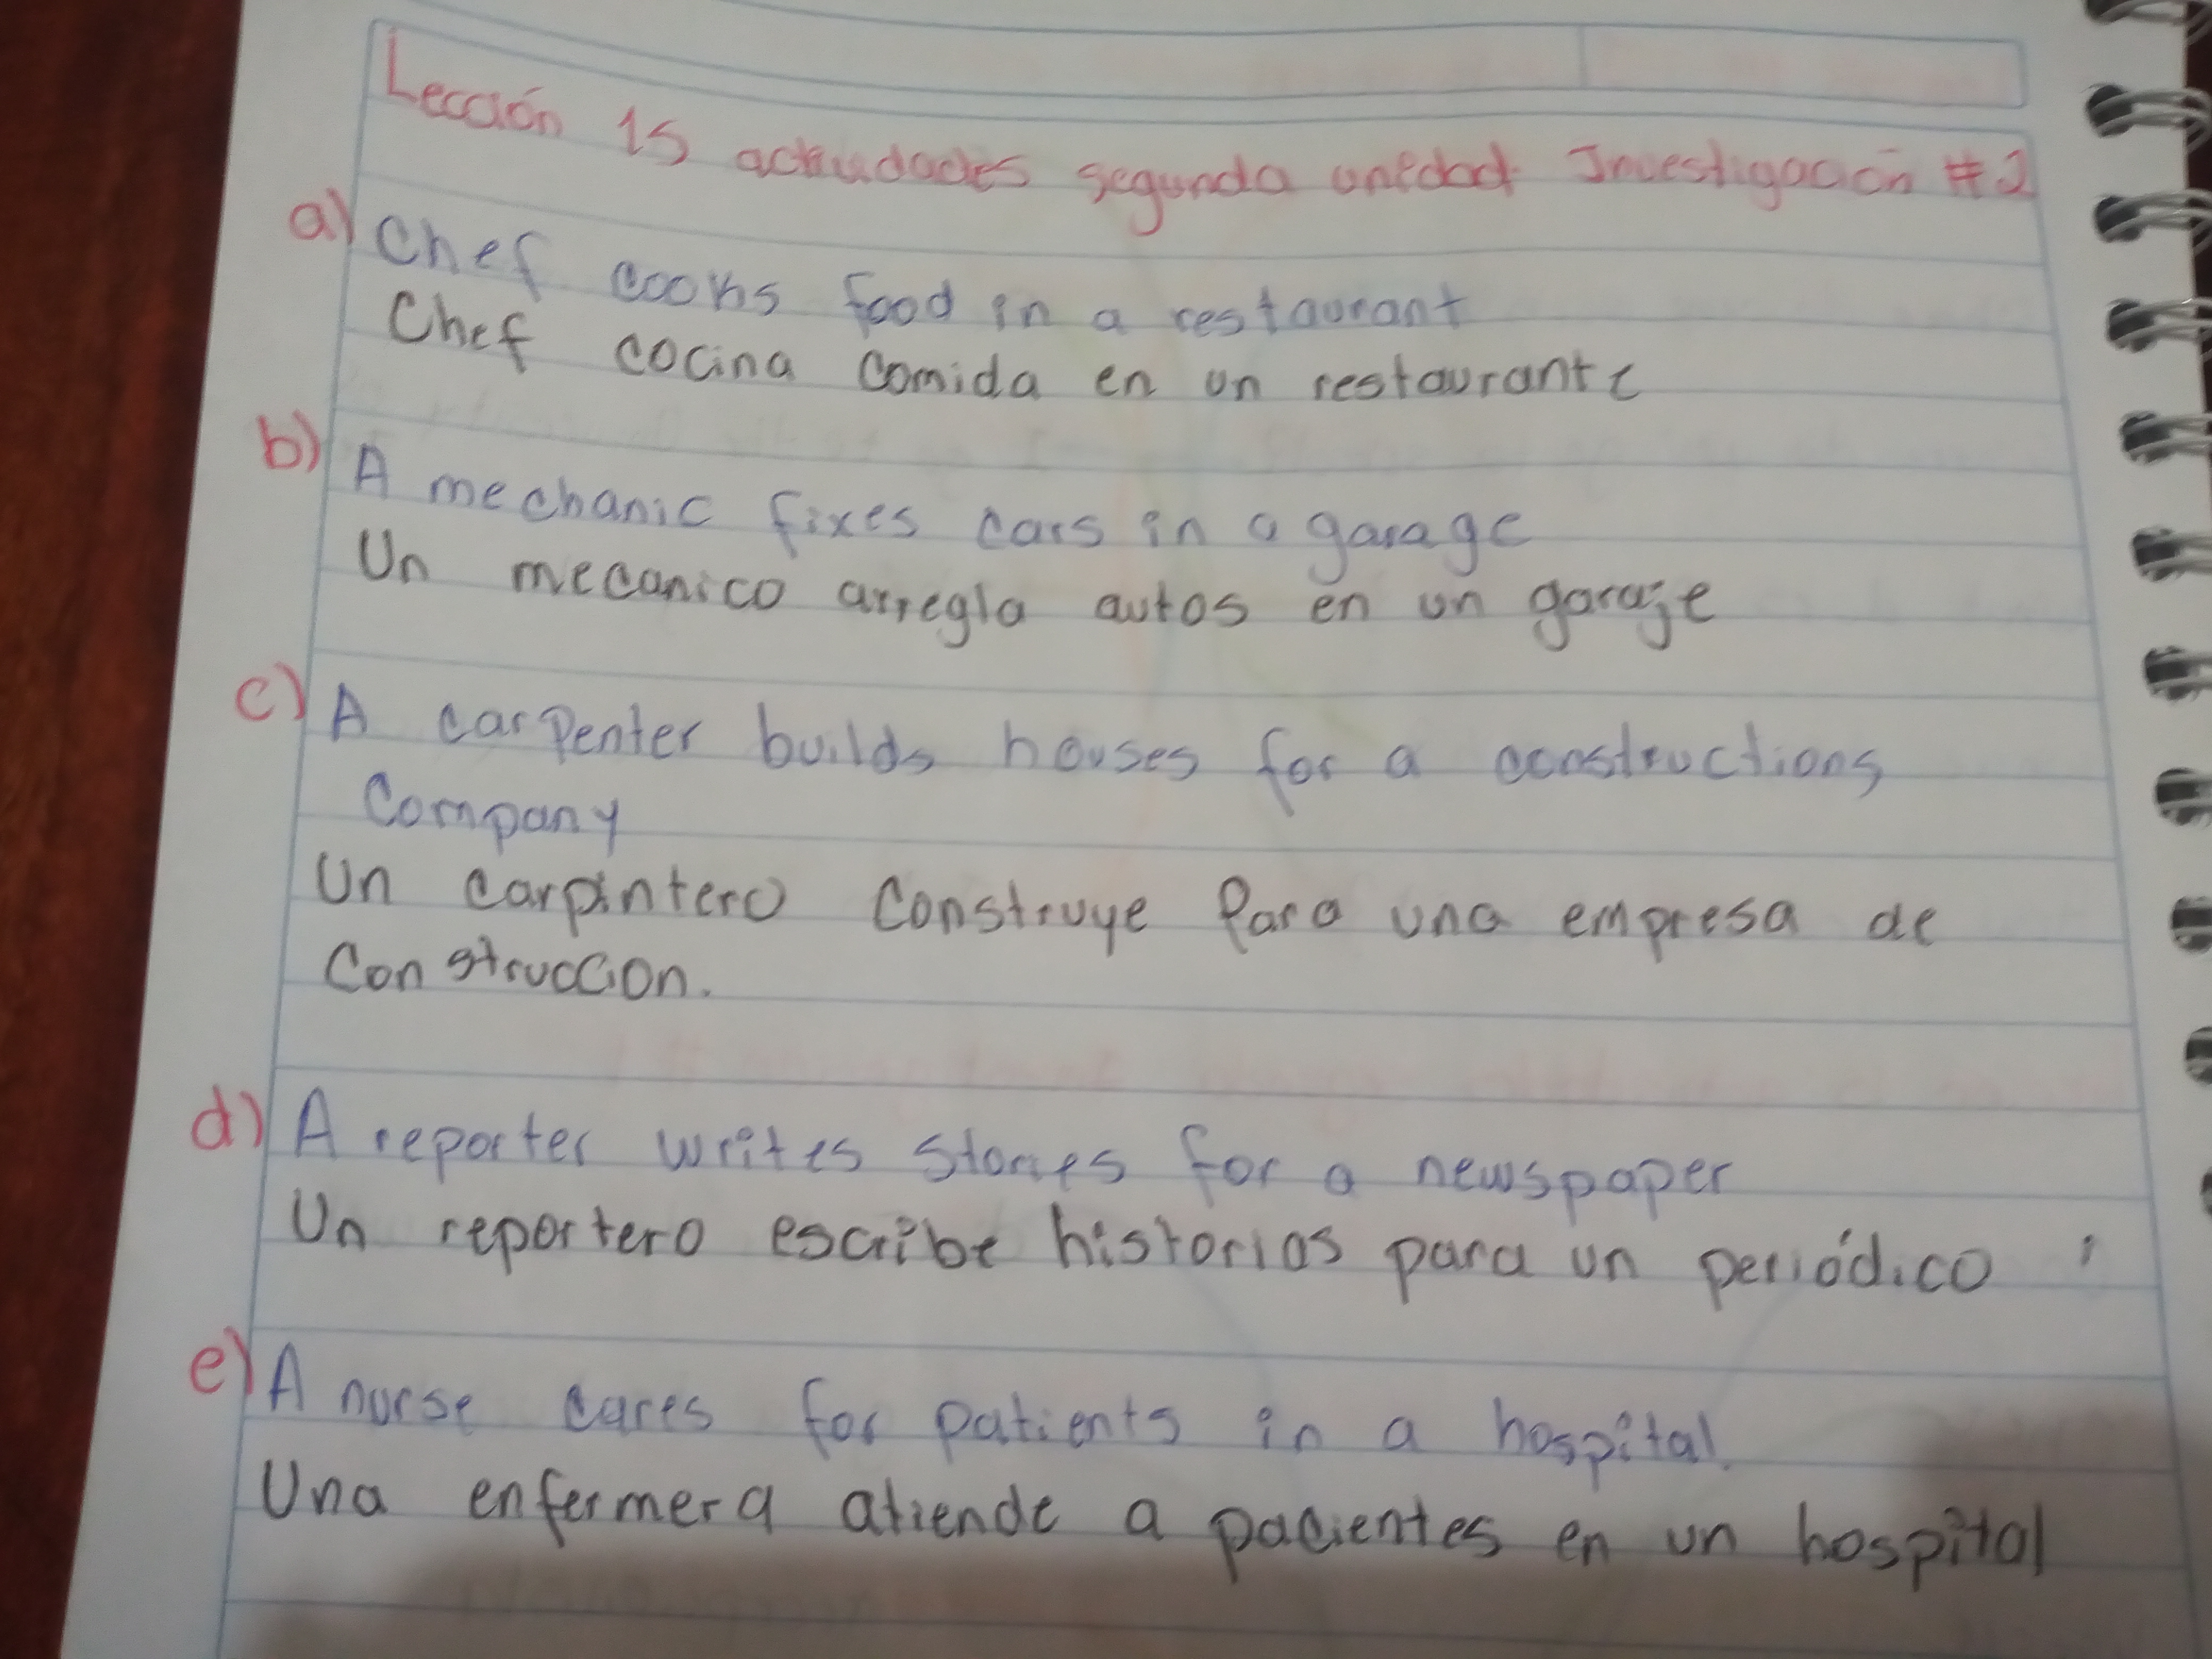 Lección 15 actividades segunda unidad Investigación #2
a) Chef cooks food in a restaurant
Chef cocina comida en un restaurante
b) A mechanic fixes cars in a garage
Un mecanico arregla autos en un garaje
c) A carpenter builds houses for a constructions
Company
Un carpintero construye Para una empresa de
Construccion.
d) A reporter writes stories for a newspaper
Un reportero escribe historias para un periódico
e) A nurse cares for patients in a hospital.
Una enfermera atiende a pacientes en un hospital